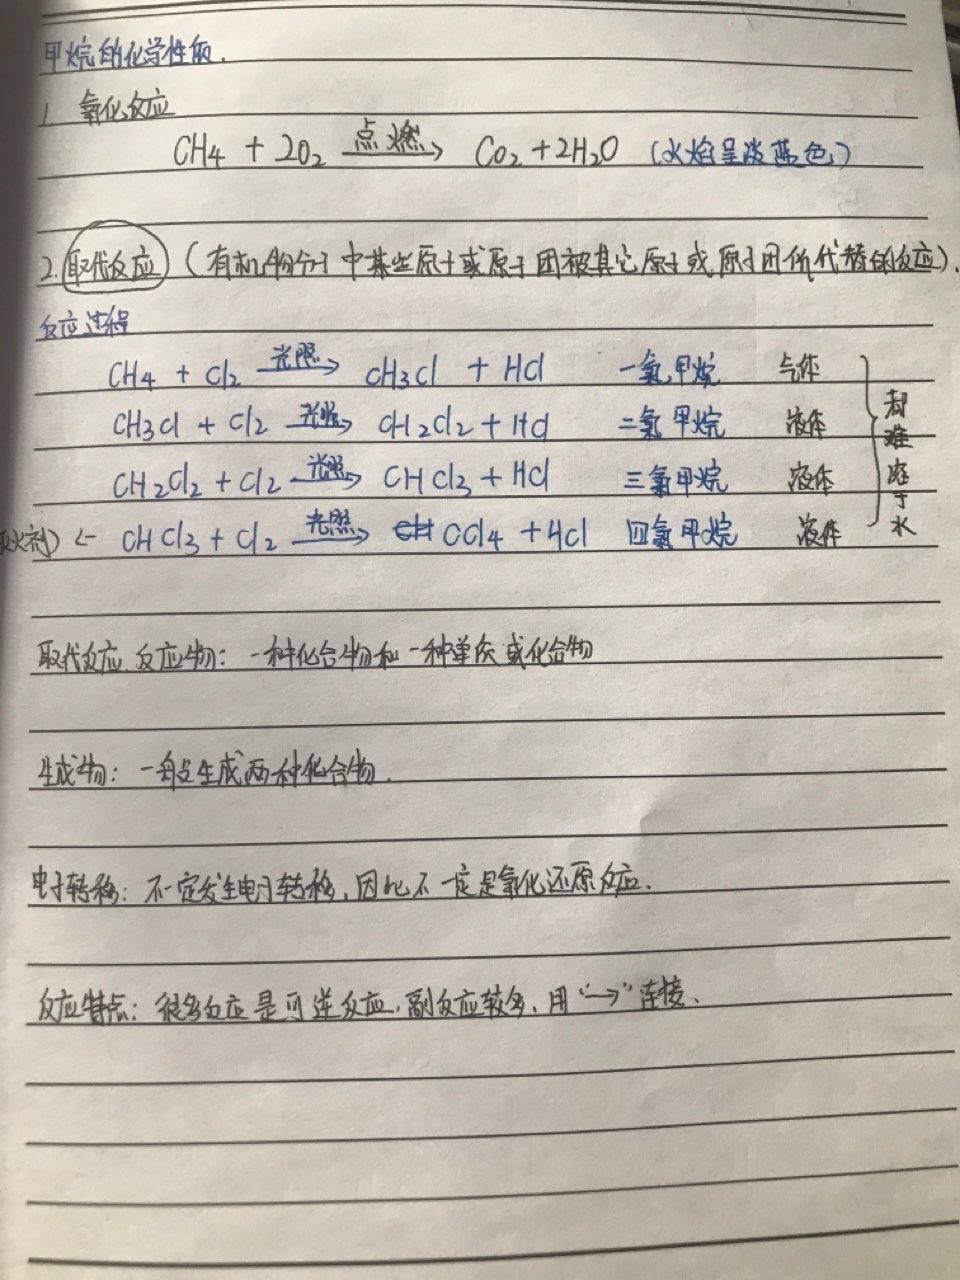 甲烷的化学性质.
1 氧化反应
CH4 + 2O2 点燃→ CO2 + 2H2O (火焰呈淡蓝色)
2.取代反应 (有机物分子中某些原子或原子团被其它原子或原子团所代替的反应).
反应过程
CH4 + Cl2 光照→ CH3Cl + HCl 一氯甲烷 气体
CH3Cl + Cl2 光照→ CH2Cl2 + HCl 二氯甲烷 液体
CH2Cl2 + Cl2 光照→ CHCl3 + HCl 三氯甲烷 液体
灭火剂) ← CHCl3 + Cl2 光照→ CCl4 + HCl 四氯甲烷 液体
都难溶于水
取代反应 反应物: 一种化合物和一种单质或化合物
生成物: 一般生成两种化合物.
电子转移: 不一定发生电子转移,因此不一定是氧化还原反应.
反应特点: 很多反应是可逆反应,副反应较多,用“→”连接.